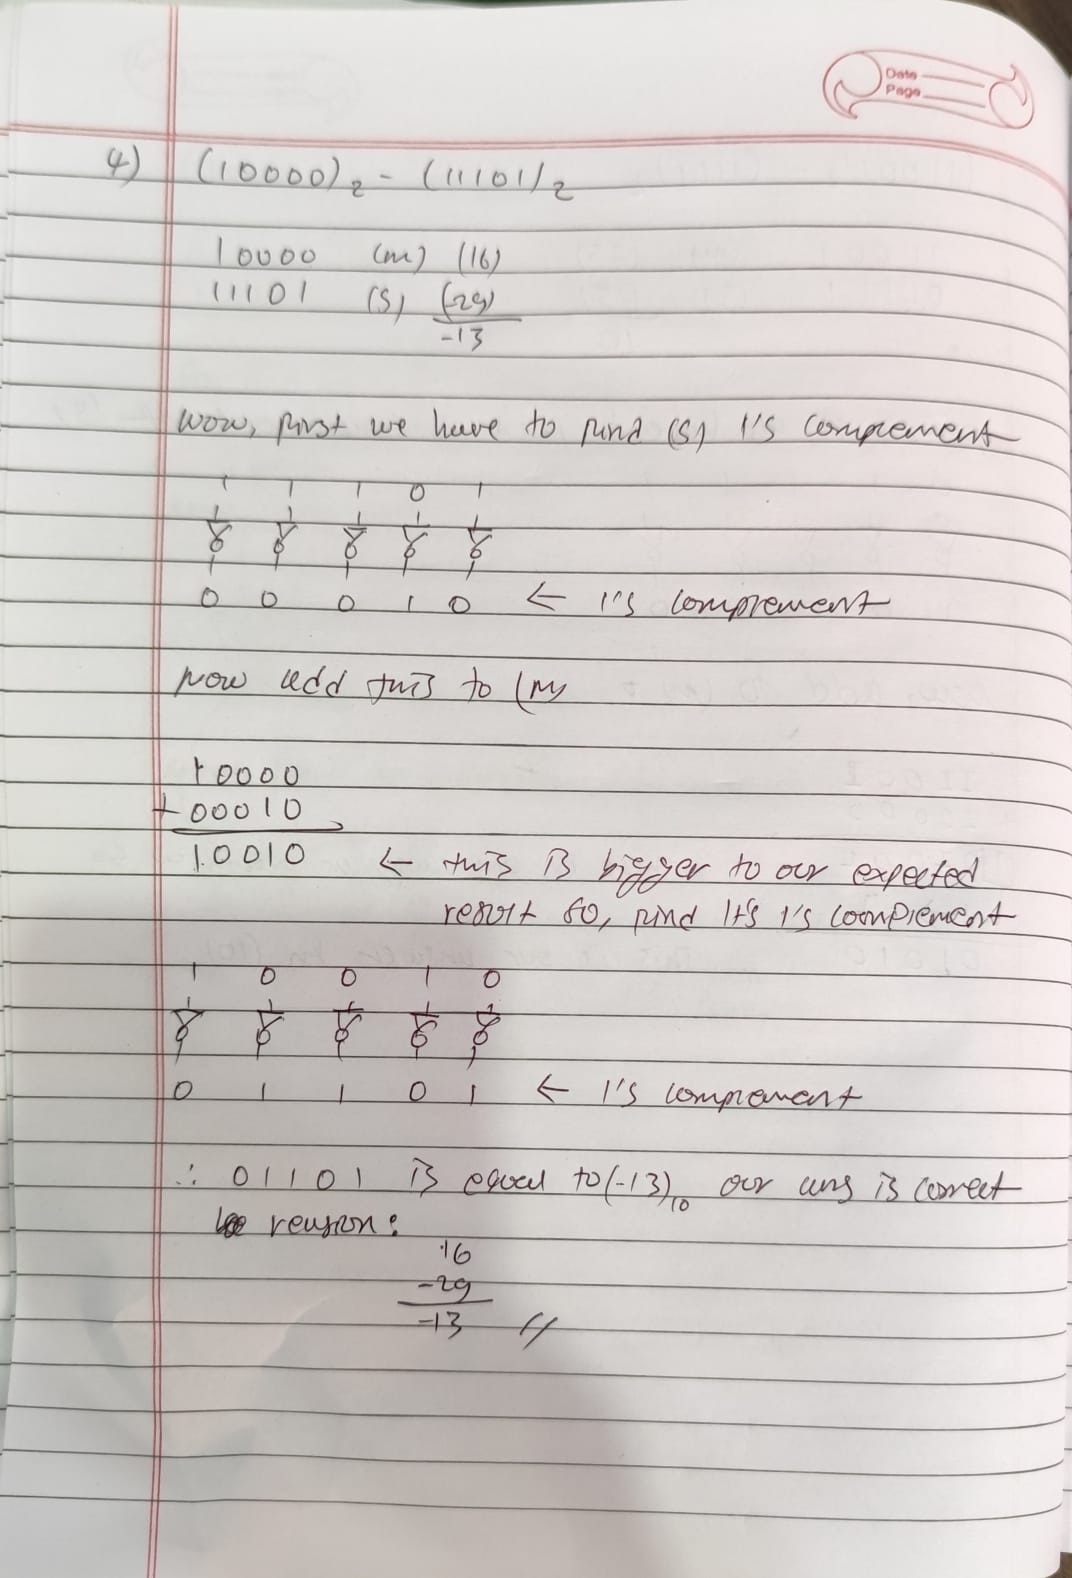 Date
Page
4) (10000)₂ - (11101)₂
10000 (m) (16)
11101 (S) (-29)
-13
Now, first we have to find (S) 1's complement
1 1 1 0 1
0 0 0 1 0 ← 1's complement
Now add this to (m)
10000
+ 00010
10010 ← this is bigger to our expected
result so, find it's 1's complement
1 0 0 1 0
0 1 1 0 1 ← 1's complement
∴ 01101 is equal to (-13)₁₀ our ans is correct
reason:
16
-29
-13 //